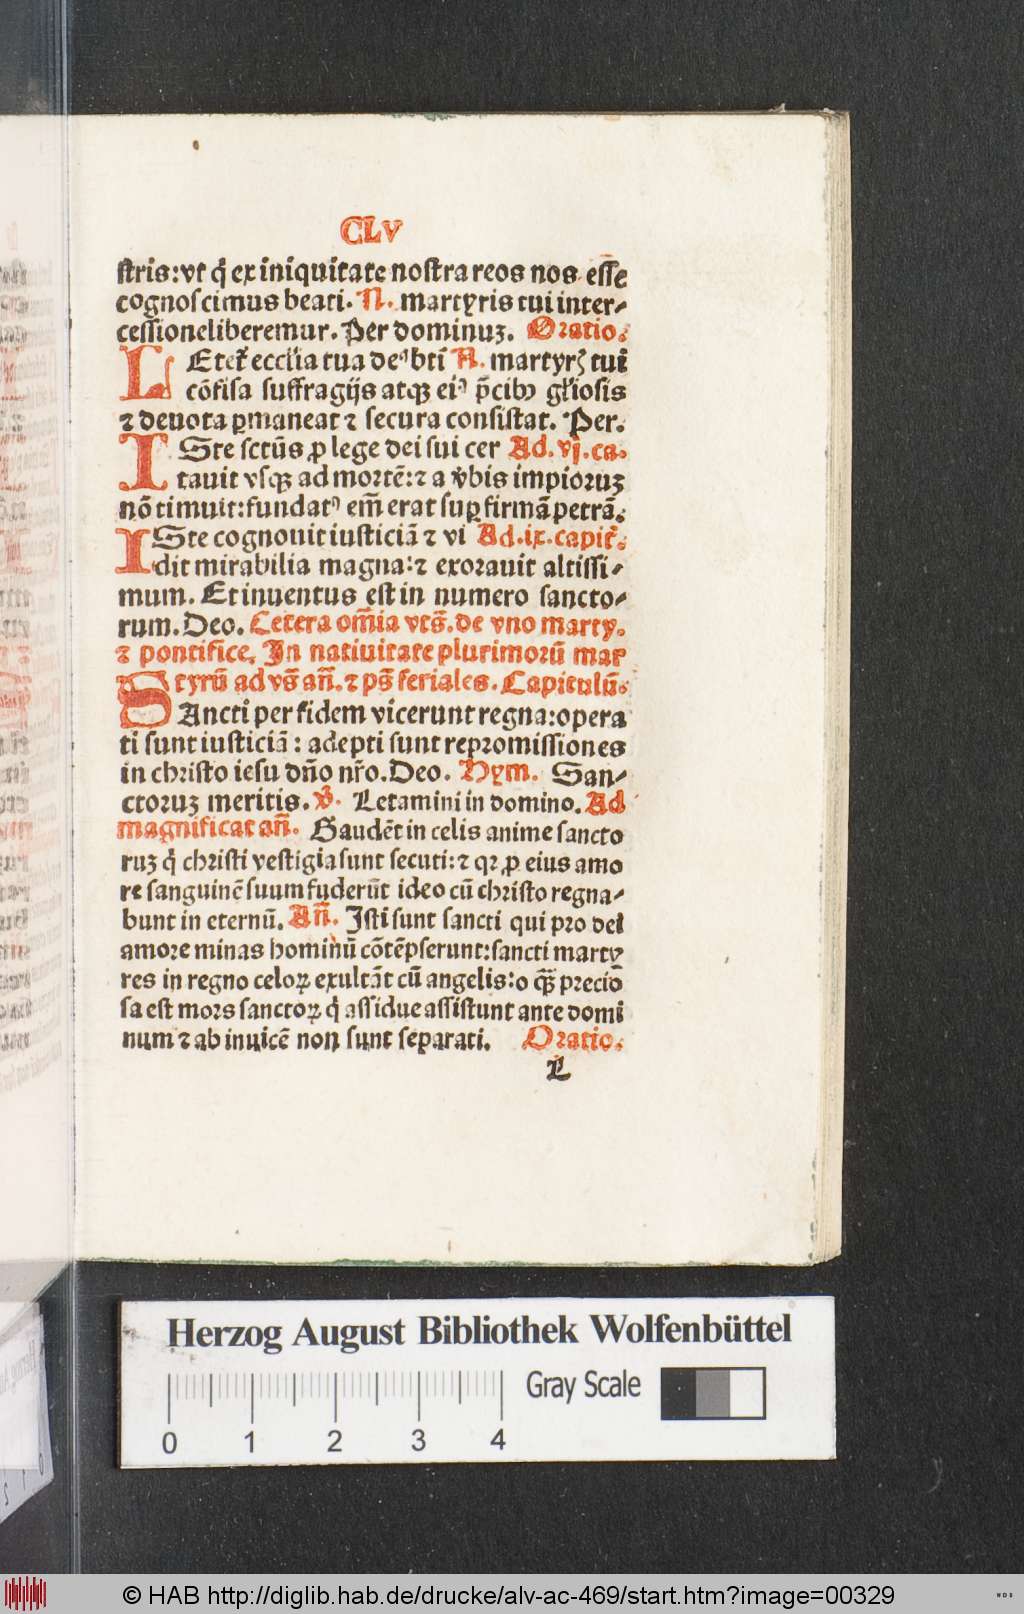 CLV
stris:vt q̇ ex iniquitate nostra reos nos esse̅
cognoscimus beati. N. martyris tui inter-
cessioneliberemur. Per dominuꝫ. Oratio.
LEtet᷑ eccl'ia tua deꝰ bti̅ N. martyrꝭ tui
co̅fisa suffragijs atqꝫ eiꝰ p̅cibꝰ gl'iosis
⁊ deuota ꝑmaneat ⁊ secura consistat. Per.
ISte sctu̅s ꝓ lege dei sui cer Ad. vj. ca.
tauit vsqꝫ ad morte̅: ⁊ a v̓bis impioruꝫ
no̅ timuit: fundatꝰ em̅ erat suꝑ firma̅ petra̅.
ISte cognouit iusticia̅ ⁊ vi Ad. ix. capit᷑.
dit mirabilia magna: ⁊ exorauit altissi-
mum. Et inuentus est in numero sancto-
rum. Deo. Cetera om̅ia vts̅. de vno marty.
⁊ pontifice. In natiuitate plurimoru̅ mar
tyru̅ ad vs̅ an̅. ⁊ ps̅ feriales. Capitulu̅.
SAncti per fidem vicerunt regna: opera
ti sunt iusticia̅: adepti sunt repromissiones
in christo iesu dn̅o nr̅o. Deo. Hym. San-
ctoruꝫ meritis. v̓. Letamini in domino. Ad
magnificat an̅. Gaude̅t in celis anime sancto
ruꝫ q̇ christi vestigia sunt secuti: ⁊ qꝛ ꝓ eius amo
re sanguine̅ suum fuderu̅t ideo cu̅ christo regna-
bunt in eternu̅. An̅. Isti sunt sancti qui pro dei
amore minas hominu̅ co̅te̅pserunt: sancti marty
res in regno celoꝝ exulta̅t cu̅ angelis: o qꝫ̅ precio̅
sa est mors sanctoꝝ q̇ assidue assistunt ante domi
num ⁊ ab inuice̅ non sunt separati. Oratio.
L
Herzog August Bibliothek Wolfenbüttel
0 1 2 3 4 Gray Scale
© HAB http://diglib.hab.de/drucke/alv-ac-469/start.htm?image=00329